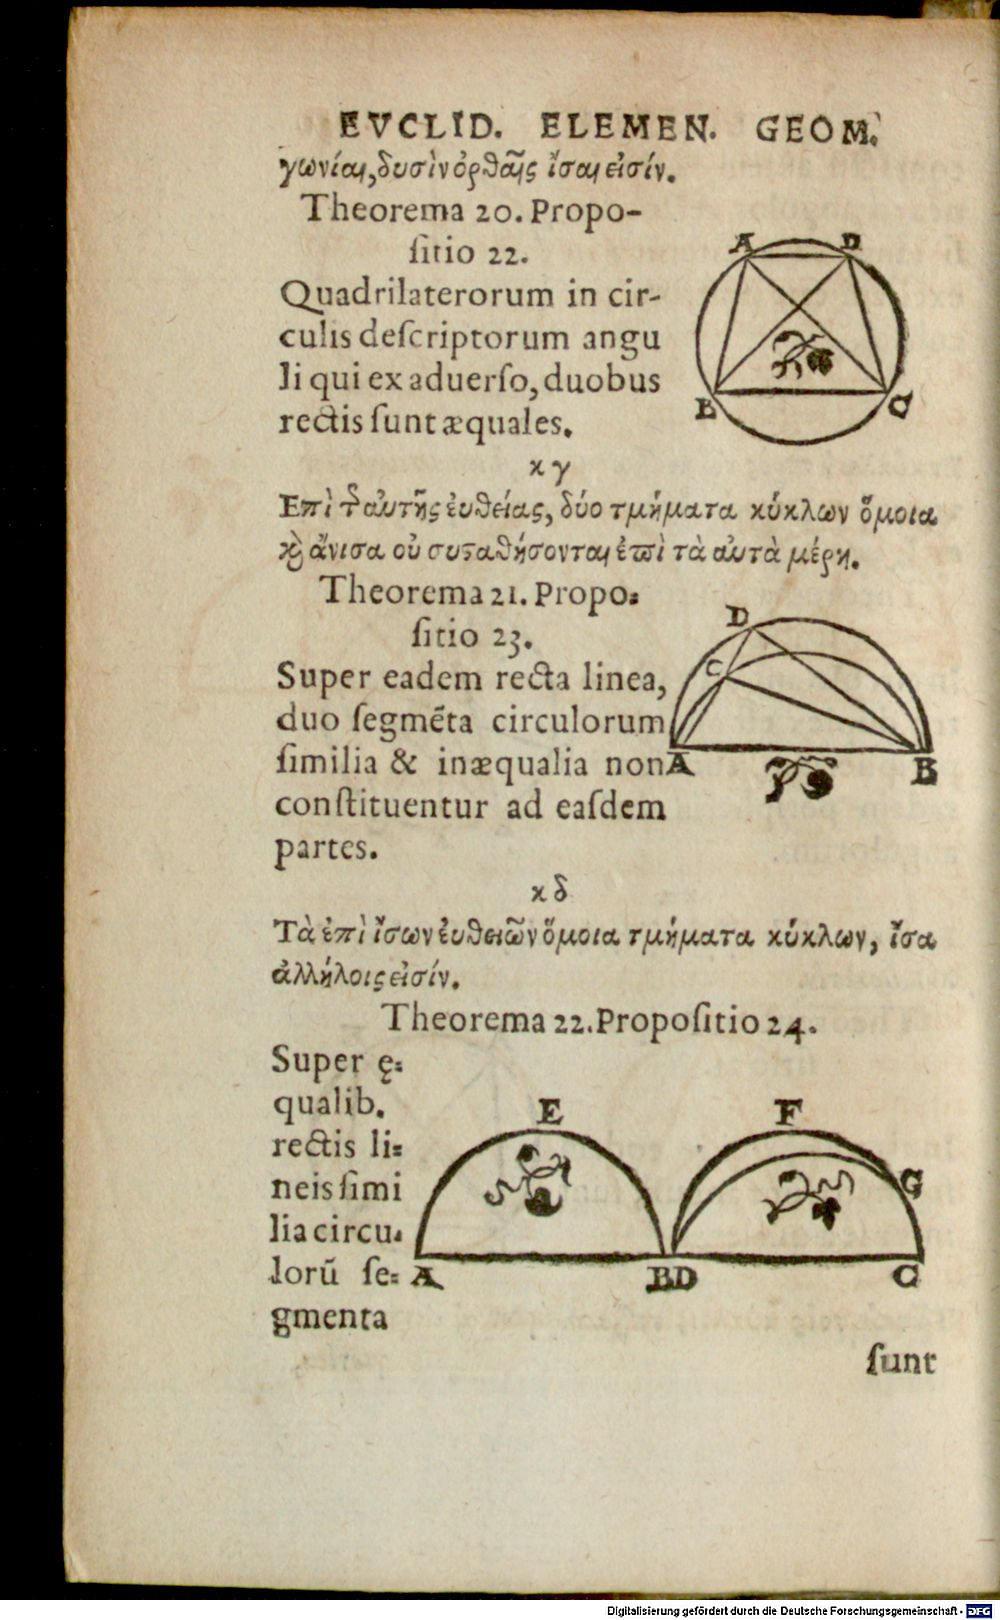 EVCLID. ELEMEN. GEOM.
γωνίαι, δυσὶν ὀρθαῖς ἴσαι εἰσίν.
Theorema 20. Propo-
ſitio 22.
Quadrilaterorum in cir-
culis deſcriptorum angu
li qui ex aduerſo, duobus
rectis ſunt æquales.
A D
B C
κγ
Επὶ τ̃ αὐτῆς ἐυθείας, δύο τμήματα κύκλων ὅμοια
κὶ ἄνισα οὐ συσταθήσονται ἐπὶ τὰ αὐτὰ μέρη.
Theorema 21. Propo-
ſitio 23.
Super eadem recta linea,
duo ſegmẽta circulorum
ſimilia & inæqualia non
conſtituentur ad eaſdem
partes.
D
C
A B
κδ
Τὰ ἐπὶ ἴσων ἐυθειῶν ὅμοια τμήματα κύκλων, ἴσα
ἀλλήλοις εἰσίν.
Theorema 22. Propoſitio 24.
Super ę-
qualib.
rectis li-
neis ſimi
lia circu-
lorũ ſe-
gmenta
E F
G
A BD C
ſunt
Digitalisierung gefördert durch die Deutsche Forschungsgemeinschaft - DFG